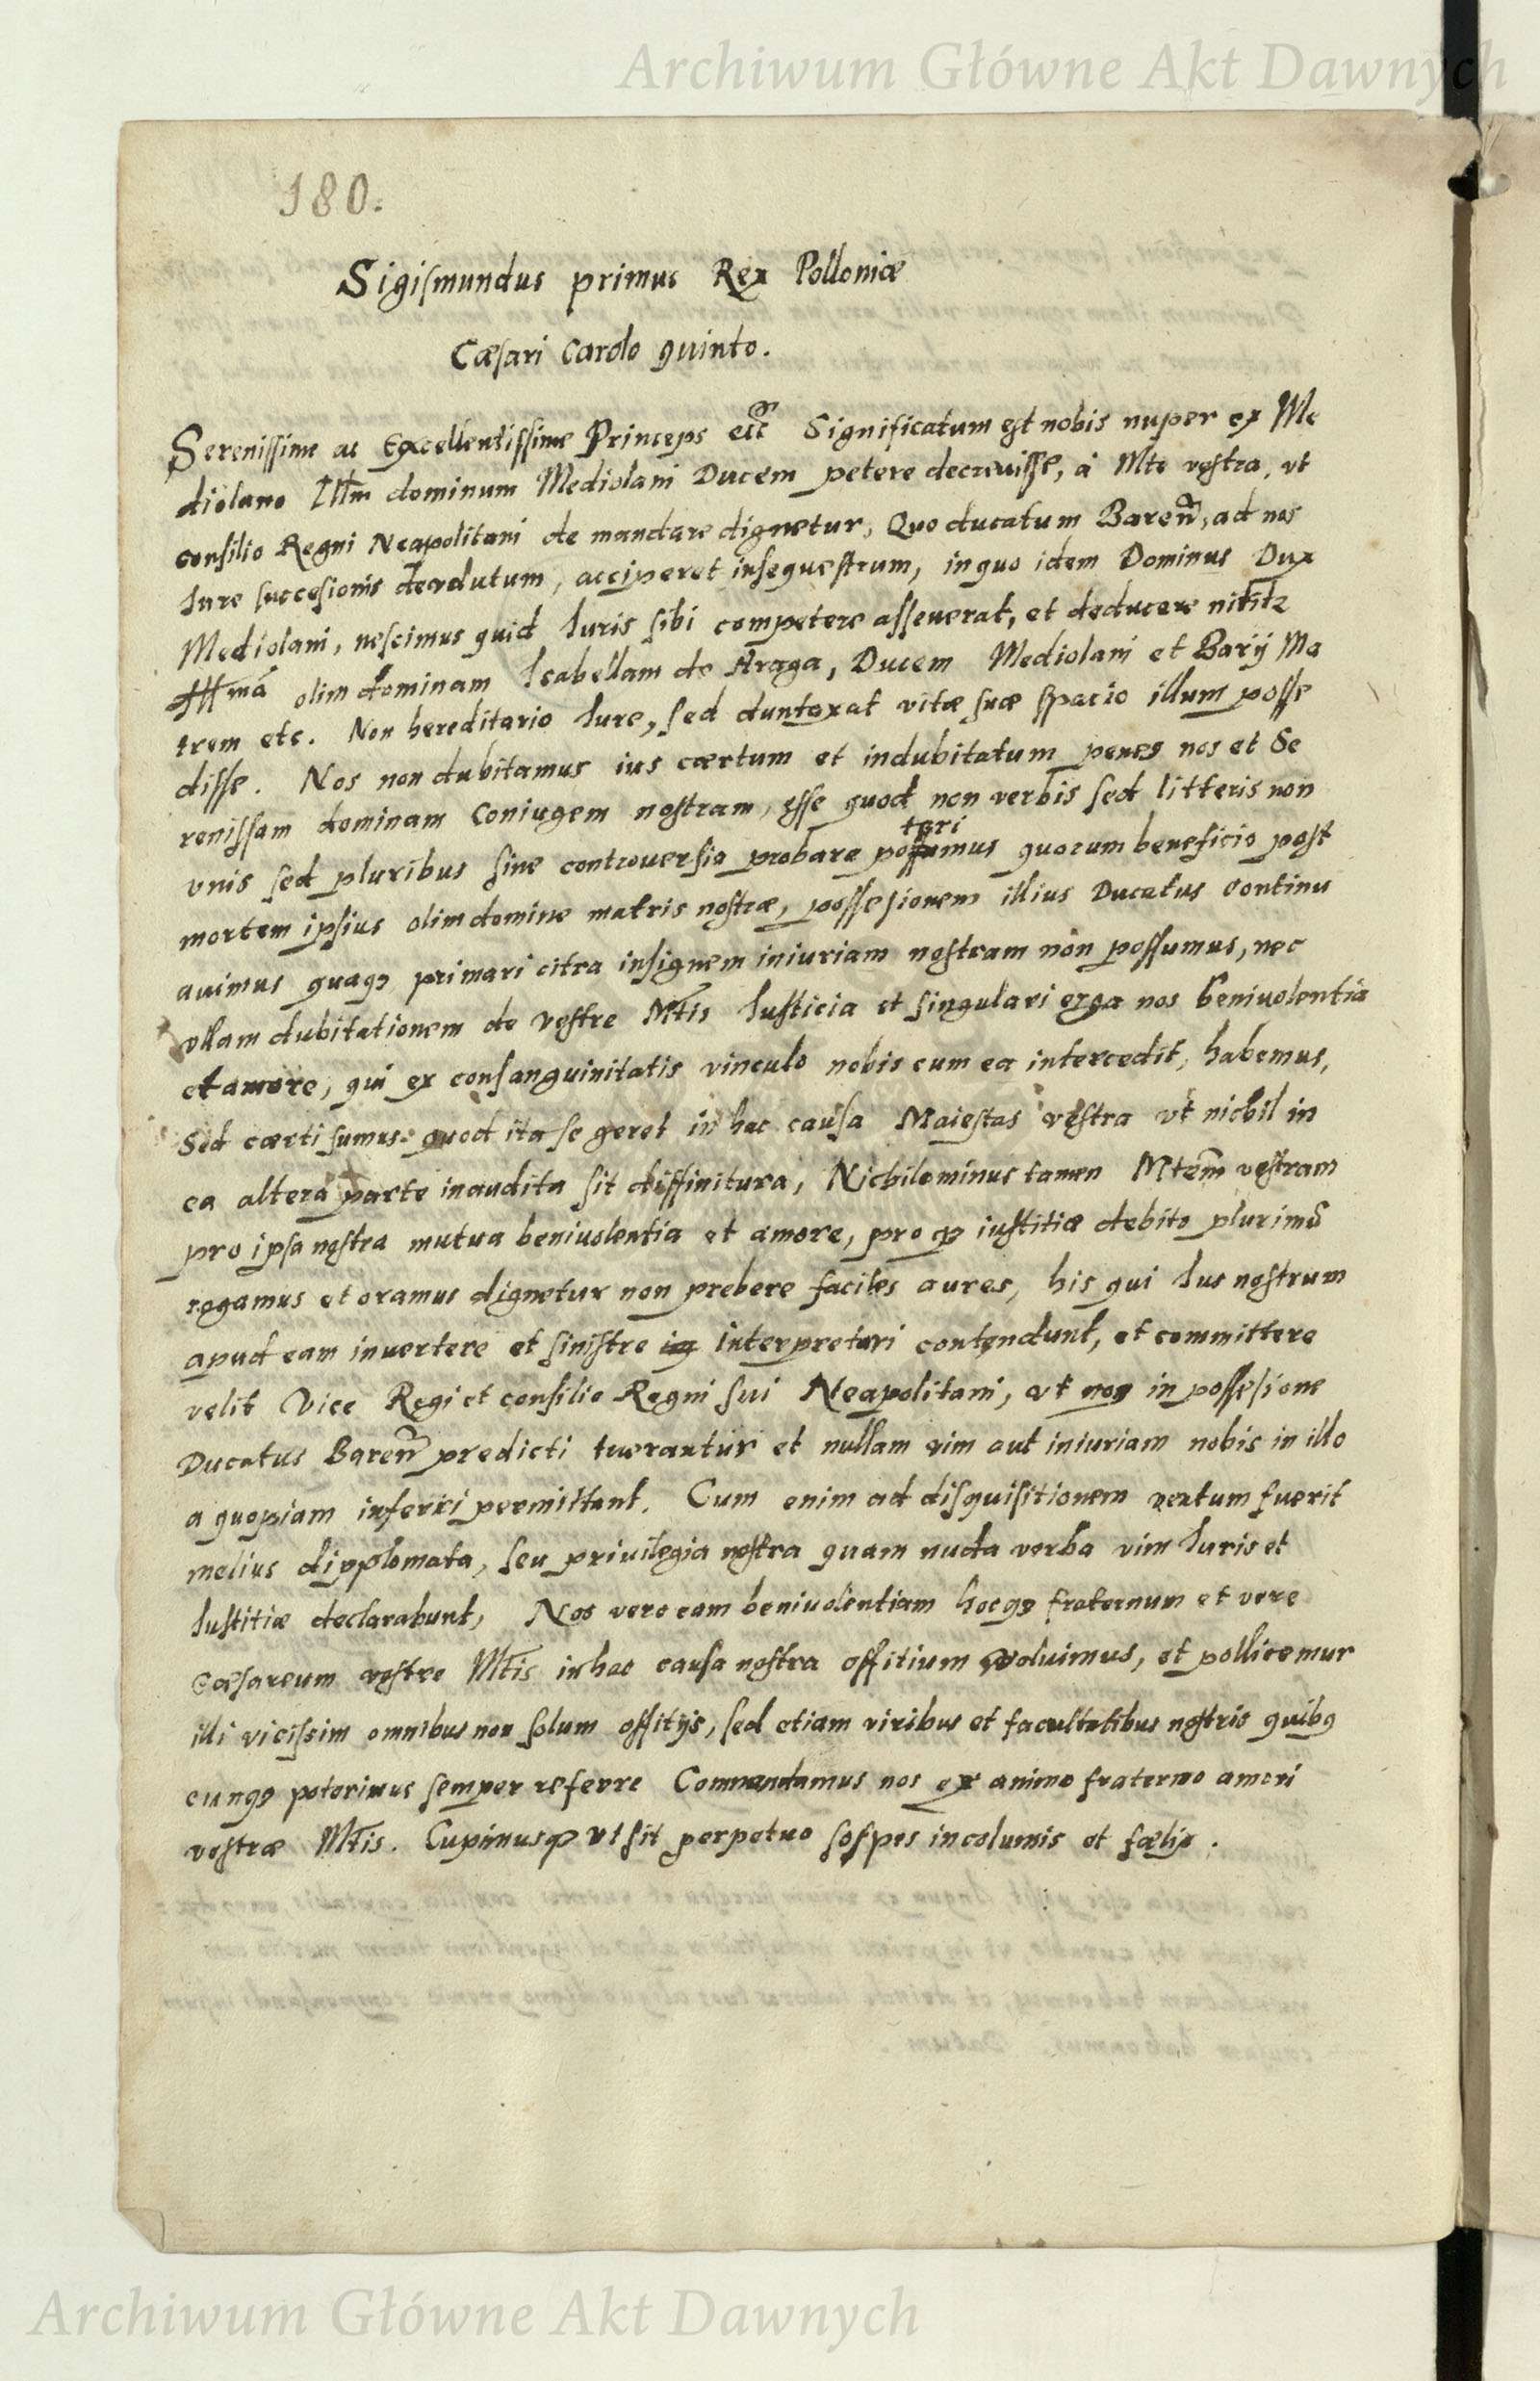 Archiwum Główne Akt Dawnych
180.
Sigismundus primus Rex Polloniæ
Cæsari Carolo quinto.
Serenissime ac Excellentissime Princeps etc̃ Significatum est nobis nuper ex Me
diolano Illm̃ dominum Mediolani Ducem petere decrevisse, à Mte vestra, vt
consilio Regni Neapolitani de mandare dignetur, Quo ducatum Bareñ, ad nos
Iure succesionis devolutum, acciperet insequestrum, in quo idem Dominus Dux
Mediolani, nescimus quid Iuris sibi competere asseverat, et deducere nititr
Illmã olim dominam Isabellam de Araga, Ducem Mediolani et Barij Ma
trem etc. Non hereditario Iure, sed duntaxat vitæ suæ spacio illum posse
disse. Nos non dubitamus ius cærtum et indubitatum penes nos et Se
renissam dominam Coniugem nostram, esse quod non verbis sed litteris non
vnis sed pluribus sine controuersia probare poterimus quorum beneficio post
mortem ipsius olim domine matris nostræ, possesionem illius Ducatus continu
auimus quaqȝ primari citra insignem iniuriam nostram non possumus, nec
vllam dubitationem de vestre Mtis Iusticia et singulari erga nos beniuolentia
et amore, qui ex consanguinitatis vinculo nobis cum ea intercedit, habemus,
Sed cærti sumus quod ita se geret in hac causa Maiestas vestra vt nichil in
ea altera parte inaudita sit diffinitura, Nichilominus tamen Mtem̃ vestram
pro ipsa nostra mutua beniuolentia et amore, pro qȝ iustitiæ debito plurimũ
rogamus et oramus dignetur non prebere faciles aures, his qui Ius nostrum
apud eam inuertere et sinistre in interpretari contendunt, et committere
velit Vice Regi et consilio Regni sui Neapolitani, vt nos in possesione
Ducatus Bareñ predicti tuerantur et nullam vim aut iniuriam nobis in illo
a quopiam inferri permittant. Cum enim ad disquisitionem ventum fuerit
melius dipplomata, seu priuilegia nostra quam nuda verba vim Iuris et
Iustitiæ declarabunt, Nos vero eam beniuolentiam hocqȝ fraternum et vere
Cæsareum vestre Mtis in hac causa nostra offitium voluimus, et pollicemur
illi vicissim omnibus non solum offitijs, sed etiam viribus et facultatibus nostris quibq
cunqȝ poterimus semper referre Commendamus nos ex animo fraterno amori
vestræ Mtis. Cupimusqȝ vt sit perpetuo sospes incolumis et fœlix.
Archiwum Główne Akt Dawnych